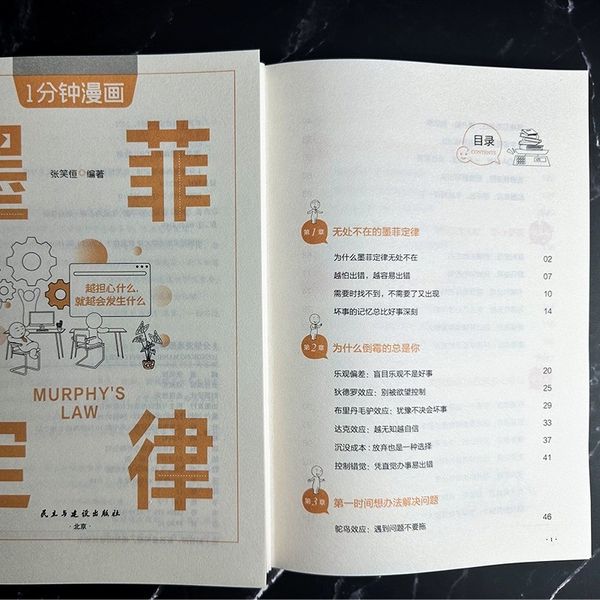 1分钟漫画
墨菲
张笑恒 编著
越担心什么，
就越会发生什么
MURPHY'S
LAW
定律
民主与建设出版社
·北京·
目录
CONTENTS
第1章 无处不在的墨菲定律
为什么墨菲定律无处不在 02
越怕出错，越容易出错 07
需要时找不到，不需要了又出现 10
坏事的记忆总比好事深刻 14
第2章 为什么倒霉的总是你
乐观偏差：盲目乐观不是好事 20
狄德罗效应：别被欲望控制 25
布里丹毛驴效应：犹豫不决会坏事 29
达克效应：越无知越自信 33
沉没成本：放弃也是一种选择 37
控制错觉：凭直觉办事易出错 41
第3章 第一时间想办法解决问题
鸵鸟效应：遇到问题不要拖 46
·1·